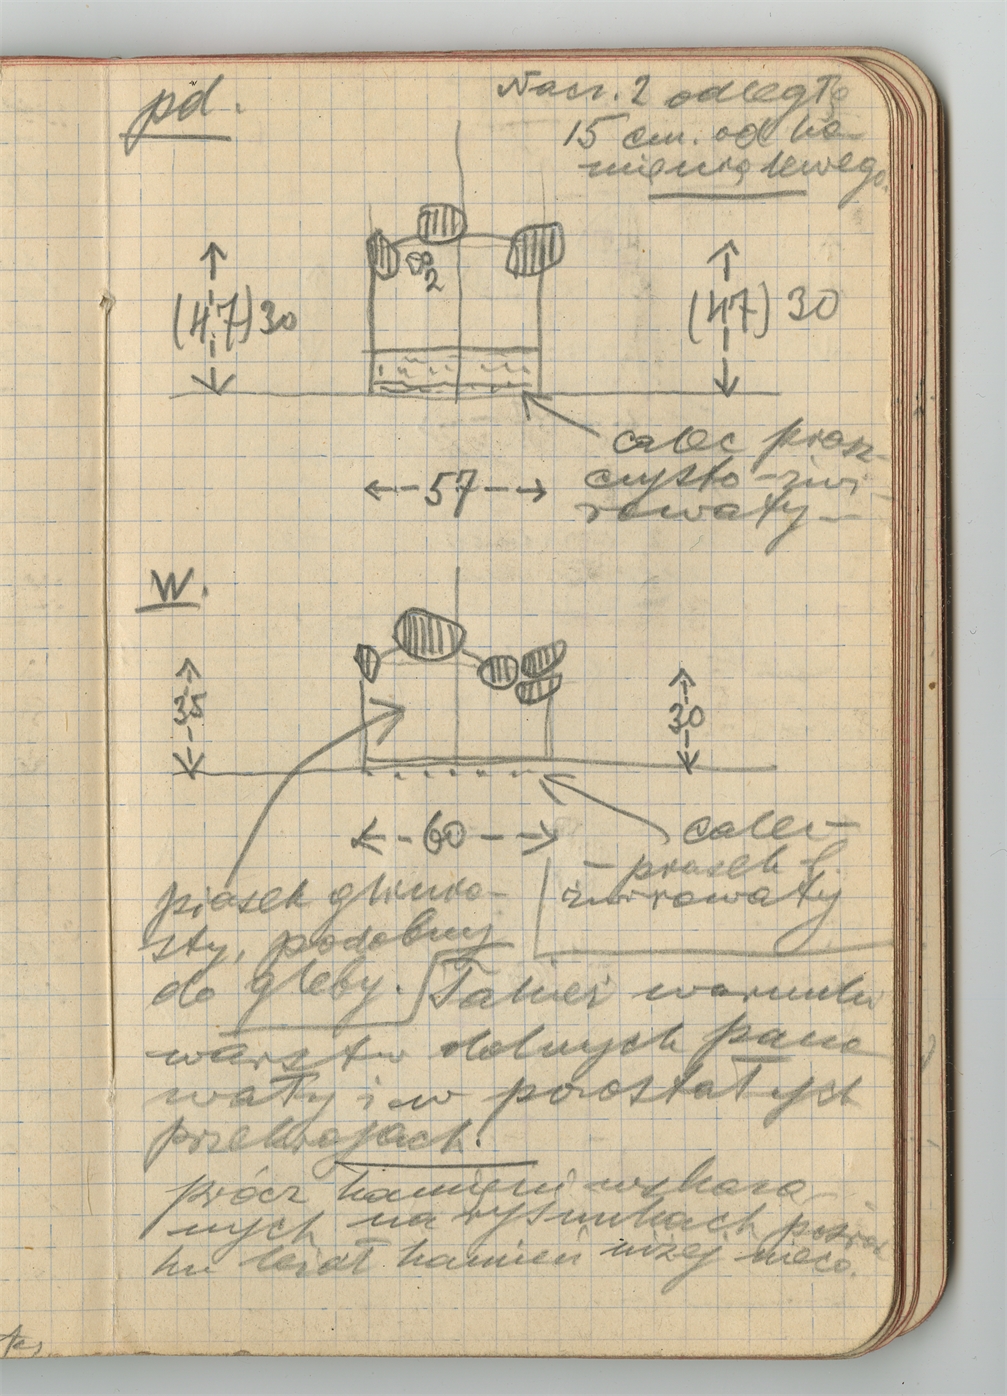 pd.
Nacz. 2 odległe
15 cm. od ka-
mienia lewego.
2
(47) 30
(47) 30
calec piasz-
czysto-żwi-
rowaty –
57
W.
35
30
60
calec –
– piasek
żwirowaty
piasek glinia-
sty, podobny
do gleby.
Takież warunki
warstw dolnych pano
wały i w pozostałych
przekrojach.
prócz kamieni wskaza
nych na rysunkach pośrod
ku leżał kamień niżej nieco.